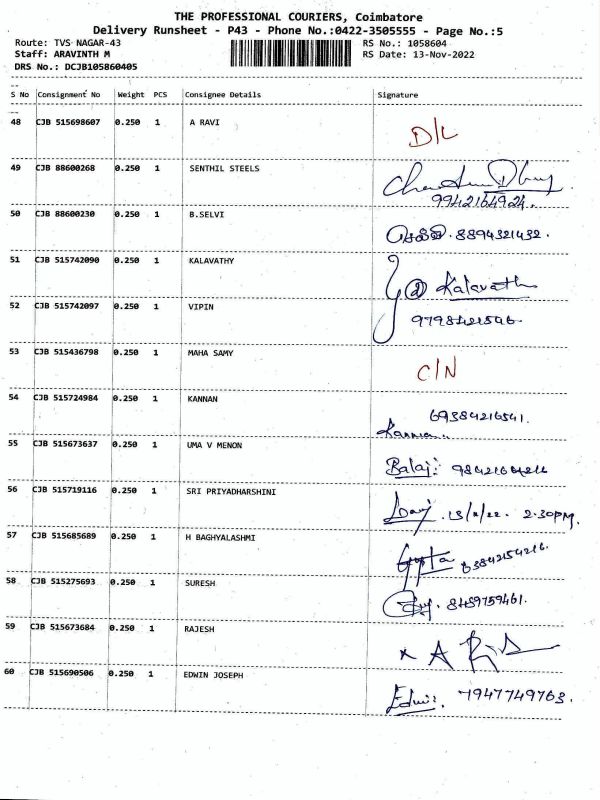 THE PROFESSIONAL COURIERS, Coimbatore
Delivery Runsheet - P43 - Phone No.:0422-3505555 - Page No.:5
Route: TVS NAGAR-43 RS No.: 1058604
Staff: ARAVINTH M RS Date: 13-Nov-2022
DRS No.: DCJB105860405
S No Consignment No Weight PCS Consignee Details Signature
48 CJB 515698607 0.250 1 A RAVI D/L
49 CJB 88600268 0.250 1 SENTHIL STEELS
9942164924.
50 CJB 88600230 0.250 1 B.SELVI
செல்வி. 8894321432.
51 CJB 515742090 0.250 1 KALAVATHY
Kalavath
52 CJB 515742097 0.250 1 VIPIN
53 CJB 515436798 0.250 1 MAHA SAMY C/N
54 CJB 515724984 0.250 1 KANNAN
69384216541.
55 CJB 515673637 0.250 1 UMA V MENON
Balaji:
56 CJB 515719116 0.250 1 SRI PRIYADHARSHINI
2.30PM.
57 CJB 515685689 0.250 1 H BAGHYALASHMI
Gupta 83842154216.
58 CJB 515275693 0.250 1 SURESH
8459759461.
59 CJB 515673684 0.250 1 RAJESH
60 CJB 515690506 0.250 1 EDWIN JOSEPH
Edwin: 7947749763.